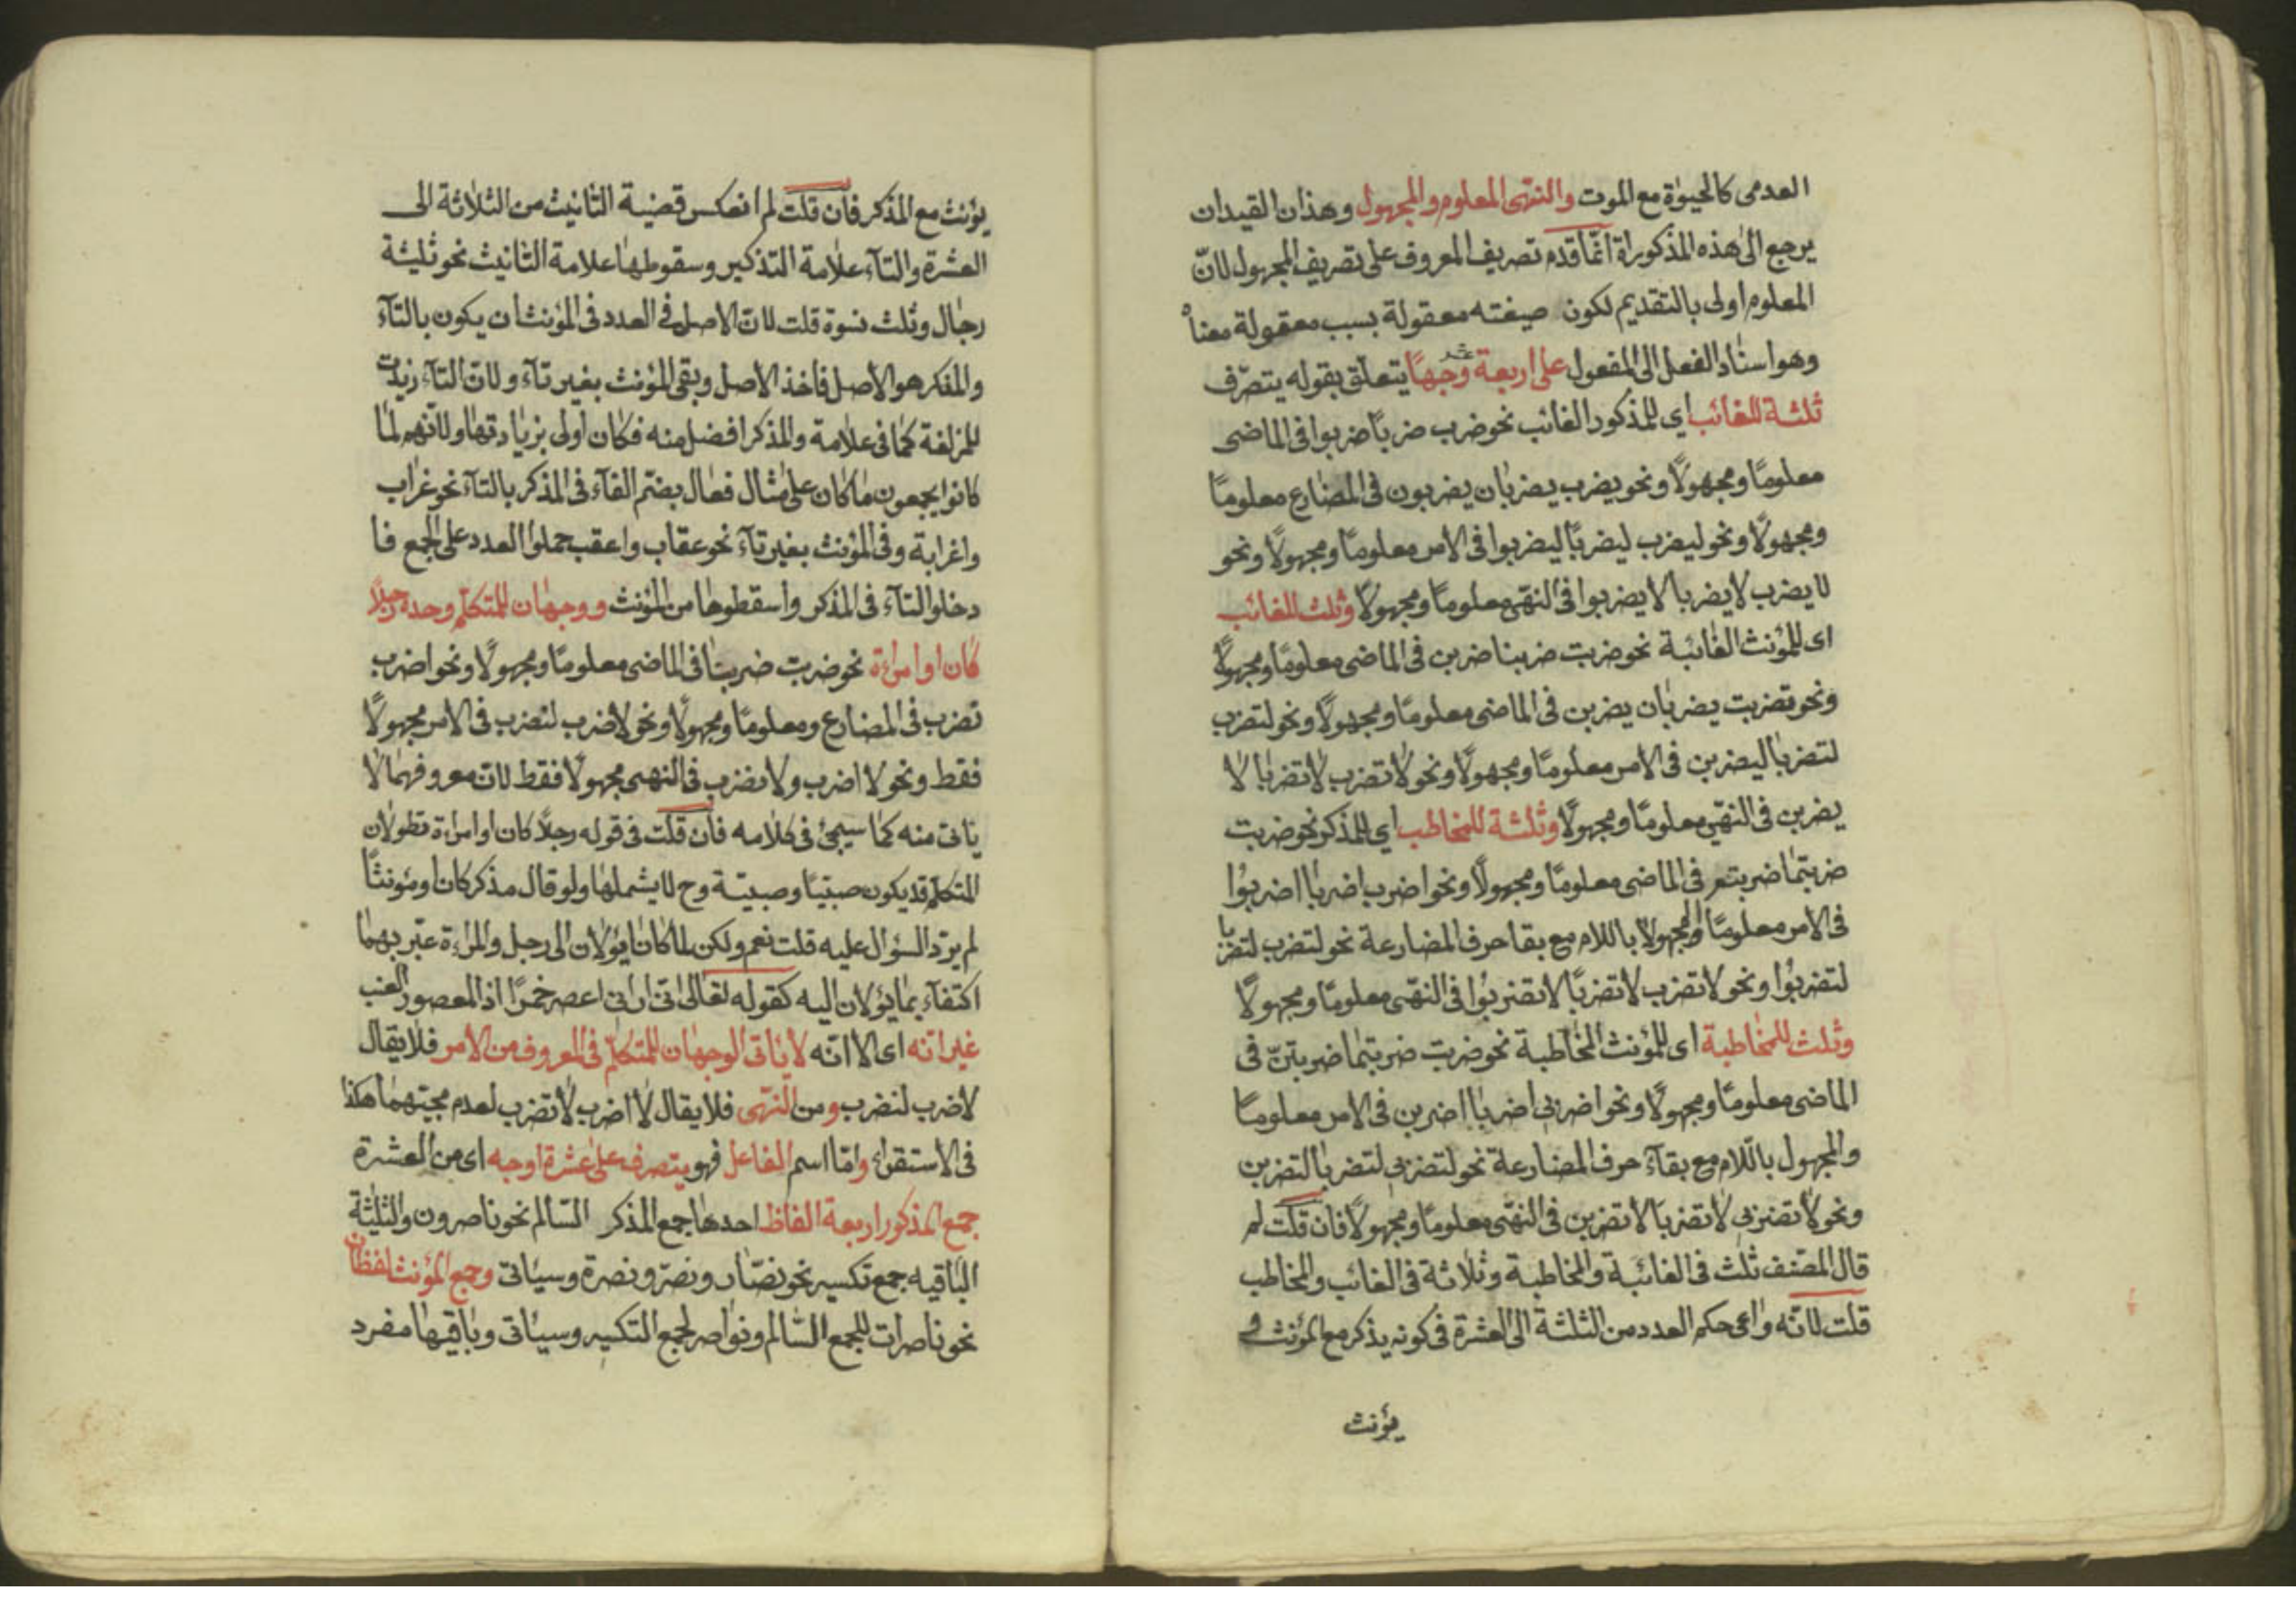 العدمى كالحيوٰة مع الموت والنهى المعلوم والمجهول وهذان القيدان
يرجع الى هذه المذكوراة انما قدم تصريف المعروف على تصريف المجهول لانّ
المعلوم اولى بالتقديم لكون صيغته معقولة بسبب معقولة معناه
وهو اسناد الفعل الى المفعول على اربعة عشر وجهًا يتعلق بقوله يتصرّف
ثلثة للغائب اى للمذكور الغائب نحو ضرب ضربا ضربوا فى الماضى
معلومًا ومجهولًا ونحو يضرب يضربان يضربون فى المضارع معلومًا
ومجهولًا ونحو ليضرب ليضربا ليضربوا فى الامر معلومًا ومجهولًا ونحو
لا يضرب لا يضربا لا يضربوا فى النهى معلومًا ومجهولًا وثلث للغائب
اى للمؤنث الغائبة نحو ضربت ضربتا ضربن فى الماضى معلومًا ومجهولًا
ونحو تضربت يضربان يضربن فى الماضى معلومًا ومجهولًا ونحو لتضرب
لتضربا ليضربن فى الامر معلومًا ومجهولًا ونحو لا تضرب لا تضربا لا
يضربن فى النهّى معلومًا ومجهولًا وثلثة للمخاطب اى للمذكر نحو ضربت
ضربتما ضربتم فى الماضى معلومًا ومجهولًا ونحو اضرب اضربا اضربوا
فى الامر معلومًا والمجهولا باللام مع بقا حرف المضارعة نحو لتضرب لتضربا
لتضربوا ونحو لا تضرب لا تضربا لا تضربوا فى النهّى معلومًا ومجهولًا
وثلث للمخاطبة اى للمؤنث المخاطبة نحو ضربت ضربتما ضربتنّ فى
الماضى معلومًا ومجهولًا ونحو اضربى اضربا اضربن فى الامر معلومًا
والمجهول باللّام مع بقآء حرف المضارعة نحو لتضربى لتضربا لتضربن
ونحو لا تضربى لا تضربا لا تضربن فى النهّى معلومًا ومجهولًا فان قلت لم
قال المصّنف ثلث فى الغائبة والمخاطبة وثلاثة فى الغائب والمخاطب
قلت لانّه واعى حكم العدد من الثلثة الى العشرة فى كونه يذكر مع المؤنث و
يؤنث
يؤنث مع المذكر فان قلت لم انعكس قضية التانيث من الثلاثة الى
العشرة والتآء علامة التذكير وسقوطها علامة التانيث نحو ثليثة
رجال وثلث نسوة قلت لانّ الاصل فى العدد فى المؤنث ان يكون بالتآء
والمفكر هو الاصل فاخذ الاصل وبقى المؤنث بغير تآء ولانّ التآء زيدت
للمزلغة كما فى علامة والمذكر افضل منه فكان اولى بزيادتها ولانّهم لما
كانوا يجمعون ما كان على مثال فعال بضّم الفآء فى المذكر بالتآء نحو غراب
واغرابة وفى المؤنث بغير تآء نحو عقاب واعقب حملوا العدد على الجمع فا
دخلوا التآء فى المذكر واسقطوها من المؤنث ووجهان للمتكلّم وحده رجلًا
كان او امراءة نحو ضربت ضربنا فى الماضى معلومًا ومجهولًا ونحو اضرب
نضرب فى المضارع ومعلومًا ومجهولًا ونحو لاضرب لنضرب فى الامر مجهولًا
فقط ونحو لا اضرب ولا نضرب فى النهى مجهولًا فقط لانّ معروفهما لا
ياتى منه كما سيجئ فى كلامه فان قلت فى قوله رجلًا كان او امراءة تطولان
المتكلّم قد يكون صبيّا وصبيّة وح لا يشملها ولو قال مذكر كان او مؤنثًا
لم يرّد السؤال عليه قلت نعم ولكن لما كانا يؤلان الى رجل والمراءة عبّر بهما
اكتفآء بما يؤلان اليه كقوله تعالى انّى ارانى اعصر خمرًا اذ المعصور العنب
غير انه اى الا انّه لا ياتى الوجهان للمتكلّم فى المعروف من الأمر فلا يقال
لاضرب لنضرب ومن النّهى فلا يقال لا اضرب لا نضرب لعدم مجيئهما هكذا
فى الاستقراء وامّا اسم الفاعل فهو يتصرف على عشرة اوجه اى من العشرة
جمع المذكور اربعة الفاظ احدها جمع المذكر السّالم نحو ناصرون والثلثة
الباقيه جمع تكسير نحو نصّار ونصّر ونصرة وسيئاتى وجمع المؤنث لفظان
نحو ناصرات للجمع السّالم ونواصر لجمع التكسير وسيئاتى وباقيها مفرد